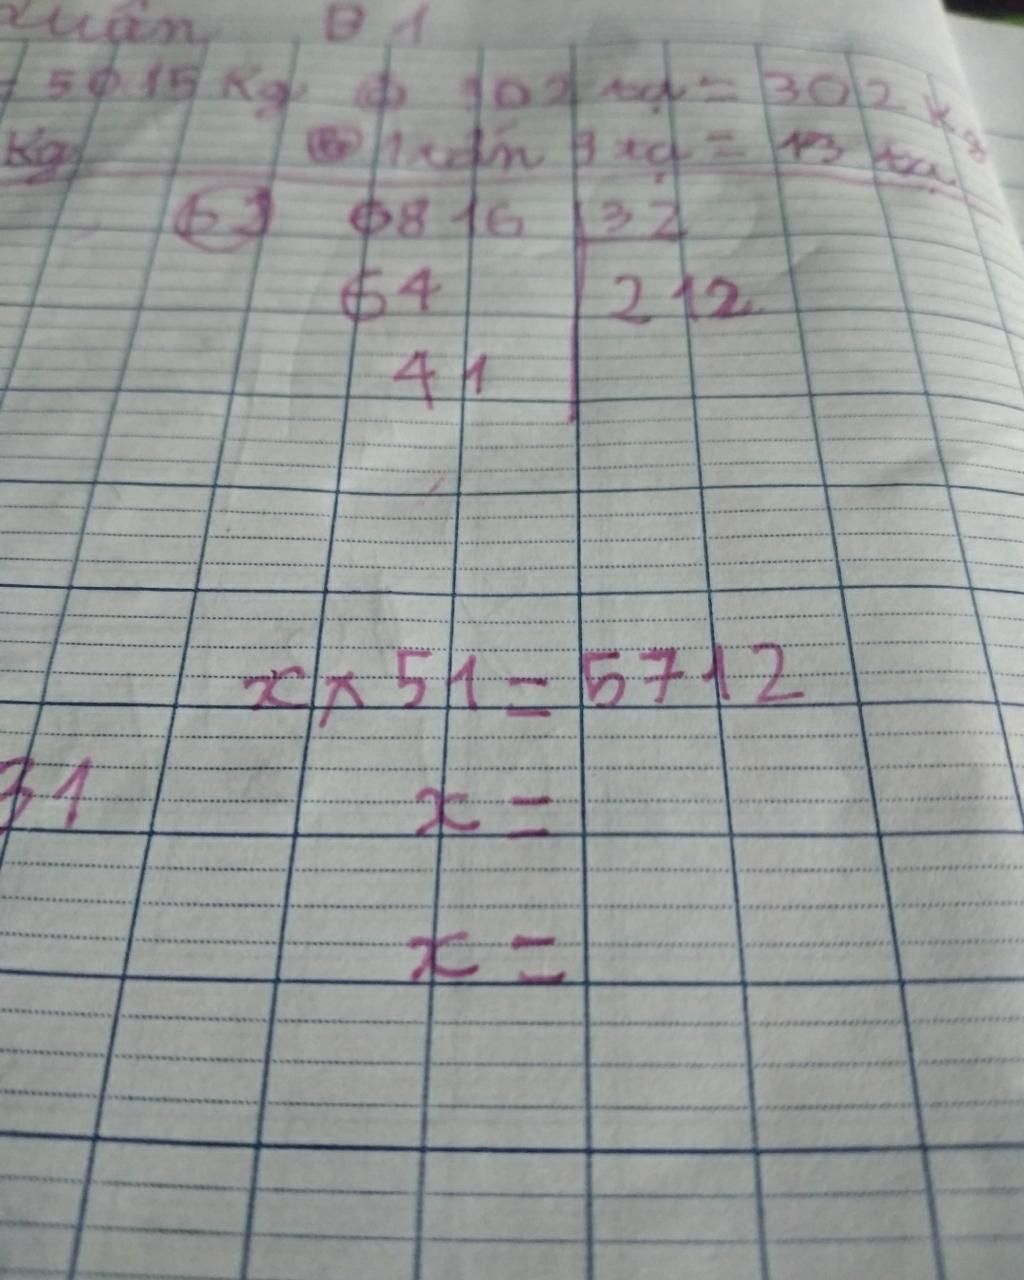 Tuấn B 1
= 5015 Kg 302 tạ = 302 kg
Kg 1 tấn 3 tạ = 13 tạ
6816 32
64 212
41
x x 51 = 5712
31 x =
x =